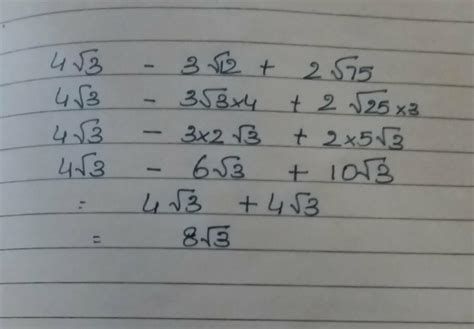 4√3 - 3√12 + 2√75
4√3 - 3√3×4 + 2√25×3
4√3 - 3×2√3 + 2×5√3
4√3 - 6√3 + 10√3
= 4√3 + 4√3
= 8√3